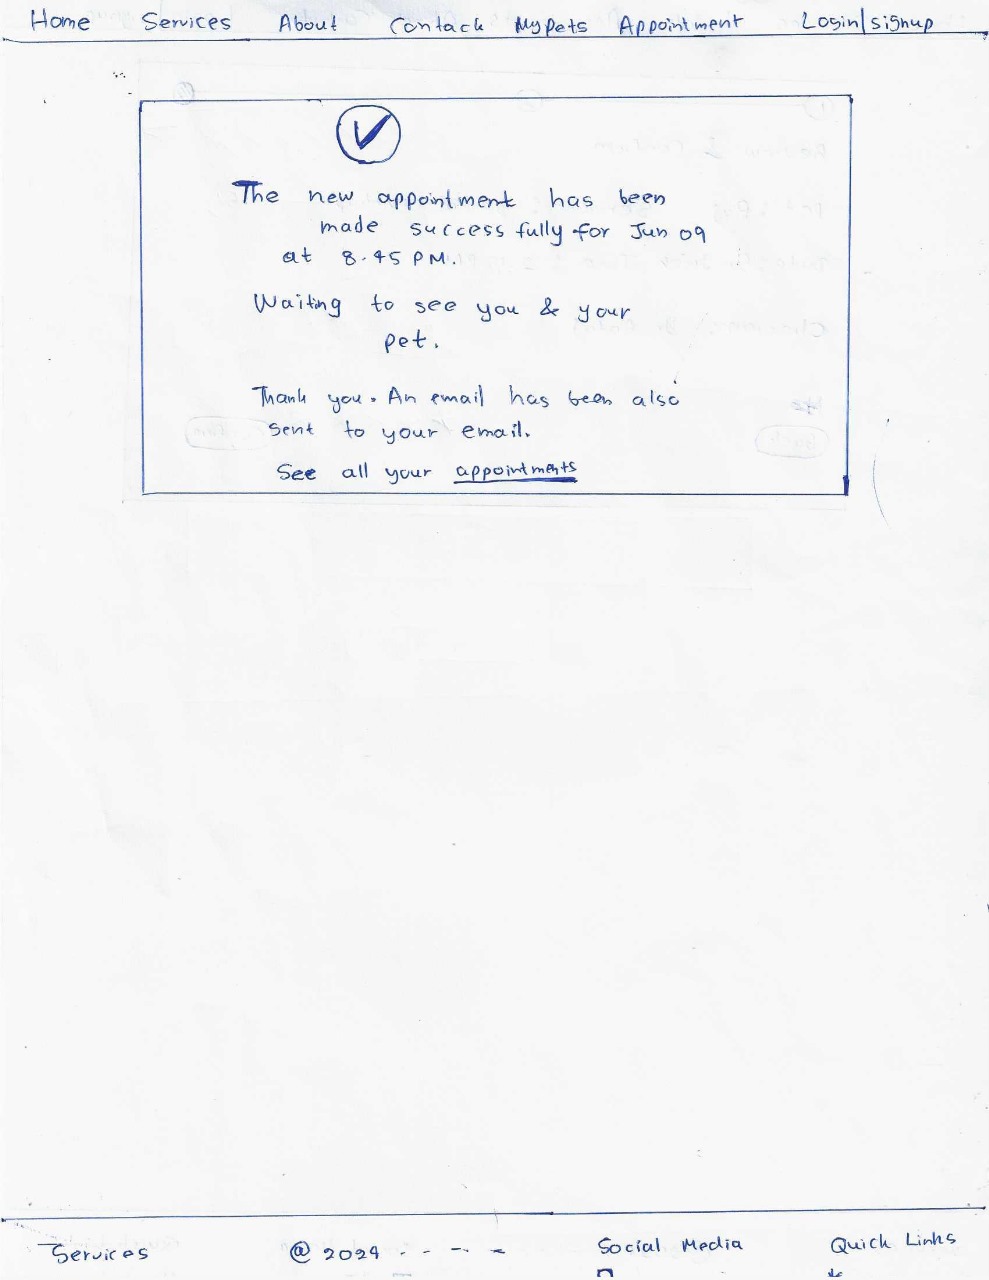 Home Services About Contack My Pets Appointment Login/signup
The new appointment has been
made successfully for Jun 09
at 8.45 PM.
Waiting to see you & your
pet.
Thank you. An email has been also
sent to your email.
See all your appointments
Services @ 2024 - - - - Social Media Quick Links